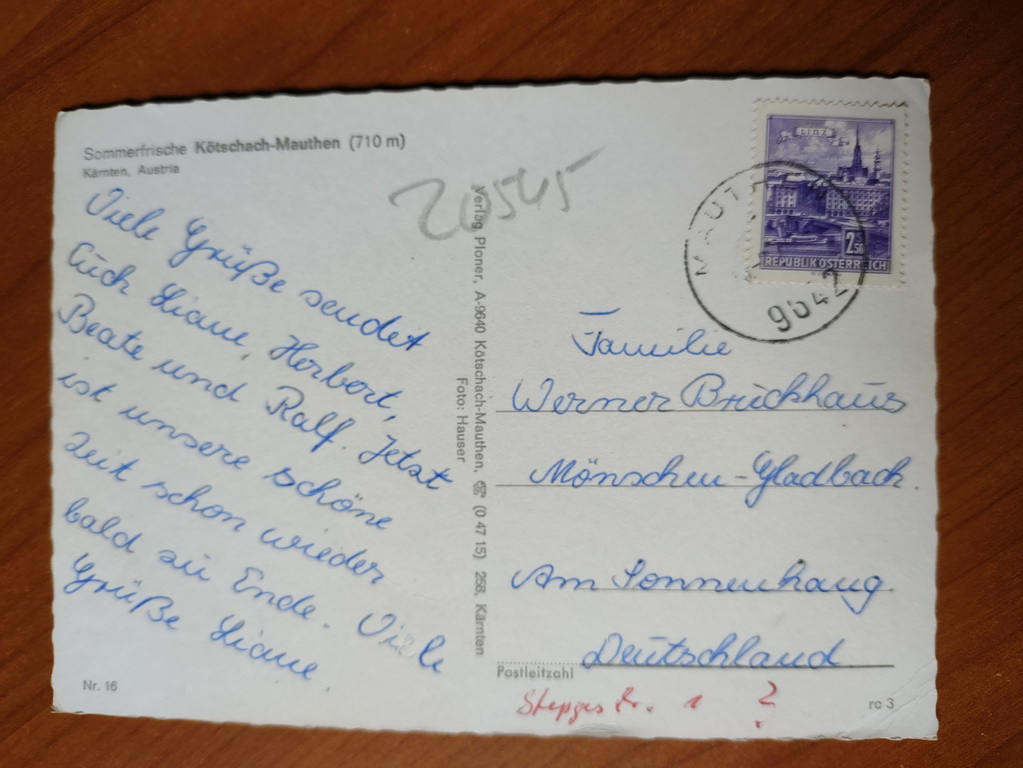 Sommerfrische Kötschach-Mauthen (710 m)
Kärnten, Austria
20545
Viele Grüße sendet
Euch Liane, Herbert,
Beate und Ralf. Jetzt
ist unsere schöne
Zeit schon wieder
bald zu Ende. Viele
Grüße Liane.
Nr. 16
Verlag Ploner, A-9640 Kötschach-Mauthen, ☎ (0 47 15) 258, Kärnten
Foto: Hauser
LINZ
2.50
REPUBLIK ÖSTERREICH
9642
Familie
Werner Brückhaus
Mönschen-Gladbach.
Am Sonnenhang.
Deutschland
Postleitzahl
1 ?
rc 3